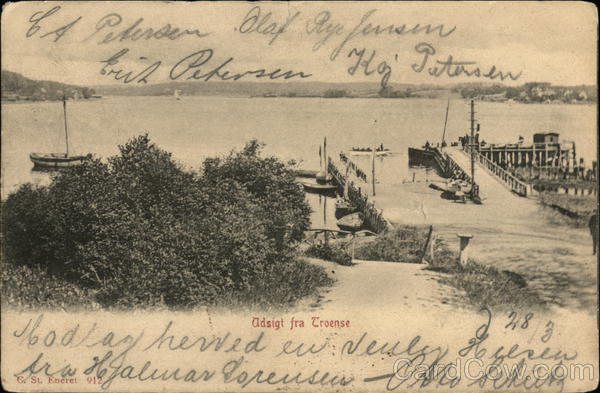 Petersen Olaf Rye Jensen
Erit Petersen Kaj Petersen
Udsigt fra Troense
d 28/3
Modtag herved en venlig Hilsen
fra Hjalmar Lorensen — Otto
G. St. Eneret 912
CardCow.com